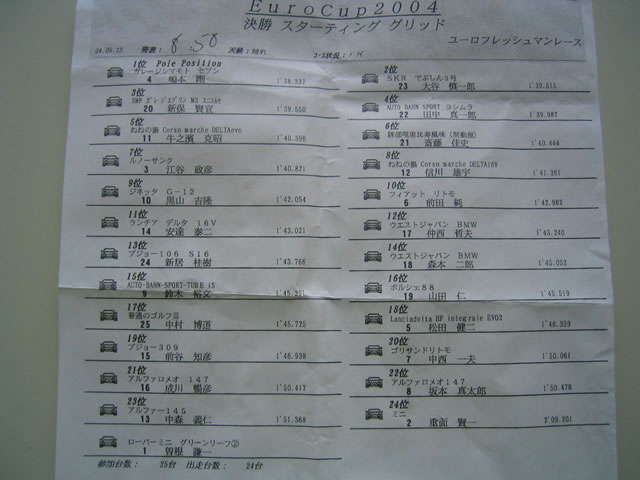 EuroCup2004
決勝 スターティング グリッド
ユーロフレッシュマンレース
04.05.23 発表: 8:50 天候:晴れ コース状況:ドライ
1位 Pole Position
ガレージシマモト セブン
4 嶋本 剛 1'38.337
2位
SKR でぶしん3号
23 大谷 慎一郎 1'39.515
3位
20 新保 賢宣 1'39.550
4位
AUTO BAHN SPORT ヨシムラ
22 田中 真一郎 1'39.987
5位
ねねの猫 Corso marche DELTAevo
11 牛之濱 克昭 1'40.396
6位
21 斎藤 佳史 1'40.444
7位
ルノーサンク
3 江谷 政彦 1'40.821
8位
ねねの猫 Corso marche DELTA16V
12 信川 雄宇 1'41.361
9位
ジネッタ G-12
10 黒山 吉隆 1'42.054
10位
フィアット リトモ
6 前田 純 1'42.962
11位
ランチア デルタ 16V
14 安達 泰二 1'43.021
12位
ウエストジャパン BMW
17 仲西 哲夫 1'43.240
13位
プジョー106 S16
24 新居 桂樹 1'43.768
14位
ウエストジャパン BMW
18 森本 二郎 1'45.052
15位
AUTO-BAHN-SPORT-TUBE iS
9 鈴木 裕文 1'45.251
16位
ポルシェ88
19 山田 仁 1'45.519
17位
普通のゴルフⅢ
25 中村 博道 1'45.725
18位
Lanciadelta HF integrale EVO2
5 松田 健二 1'46.359
19位
プジョー309
15 前谷 知彦 1'46.938
20位
ゴリサンドリトモ
7 中西 一夫 1'50.061
21位
アルファロメオ 147
16 成川 暢彦 1'50.417
22位
アルファロメオ147
8 坂本 真太郎 1'50.478
23位
アルファー145
13 中森 義仁 1'51.368
24位
ミニ
2 重面 賢一 2'09.201
ローバーミニ グリーンリーフ②
1 曽根 謙一
参加台数: 25台 出走台数: 24台